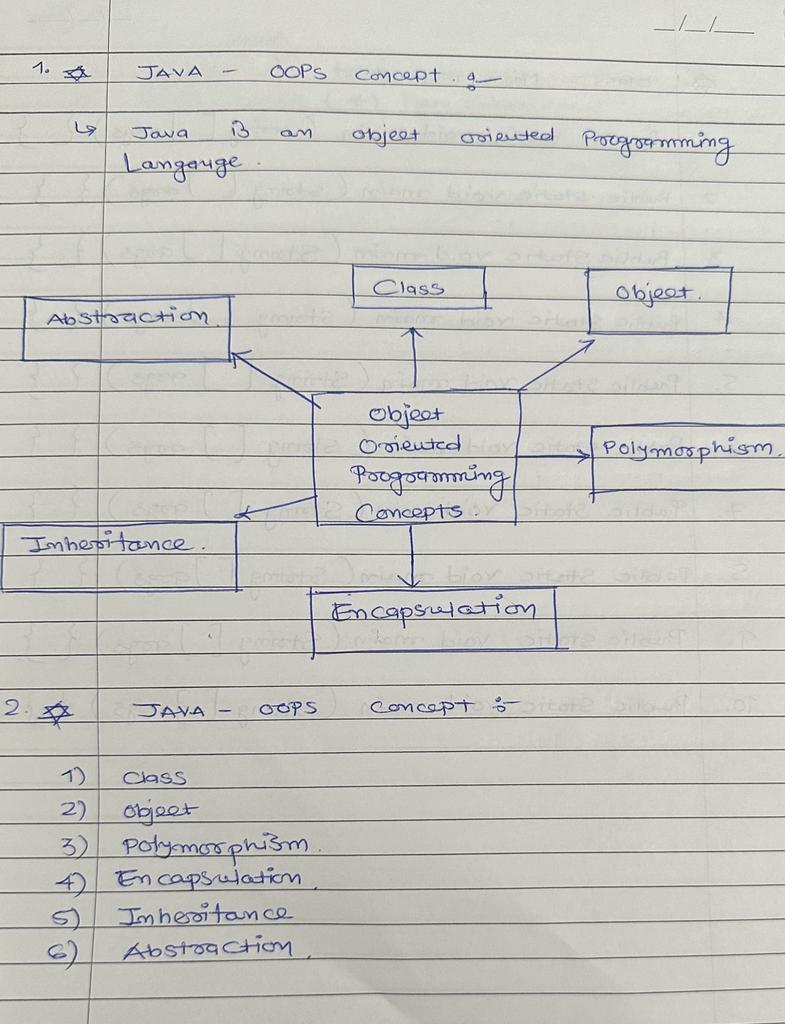 _/_/__
1. ☆ JAVA - OOPS Concept :-
↳ Java is an object oriented Programming
Langauge.
Class
Object.
Abstraction.
Object
Oriented
Programming
Concepts.
Polymorphism.
Inheritance.
Encapsulation
2. ☆ JAVA - OOPS Concept :-
1) Class
2) Object
3) Polymorphism.
4) Encapsulation.
5) Inheritance
6) Abstraction.